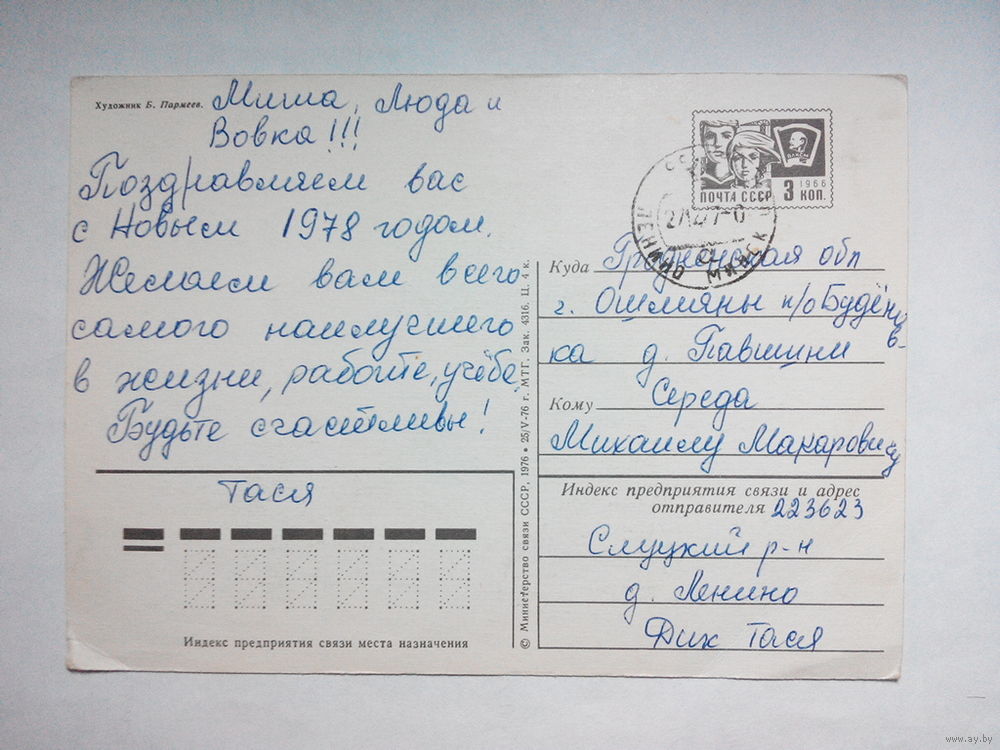 Художник Б. Пармеев.
Миша, Люда и
Вовка!!!
Поздравляем вас
с Новым 1978 годом.
Желаем вам всего
самого наилучшего
в жизни, работе, учёбе.
Будьте счастливы!
Тася
Индекс предприятия связи места назначения
© Министерство связи СССР, 1976 • 25/V-76 г. МТГ. Зак. 4316. Ц. 4 к.
ВЛКСМ
1966
ПОЧТА СССР 3 КОП.
МИНСК
Куда Гродненская обл
г. Ошмяны п/о Будёнов-
ка д. Павшини
Кому Середа
Михаилу Макаровичу
Индекс предприятия связи и адрес
отправителя 223623
Слуцкий р-н
д. Ленино
Дих Тася
www.ay.by